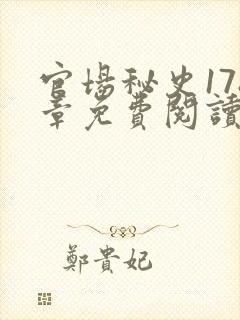 官場秘史17
章免費閱讀
鄭貴妃